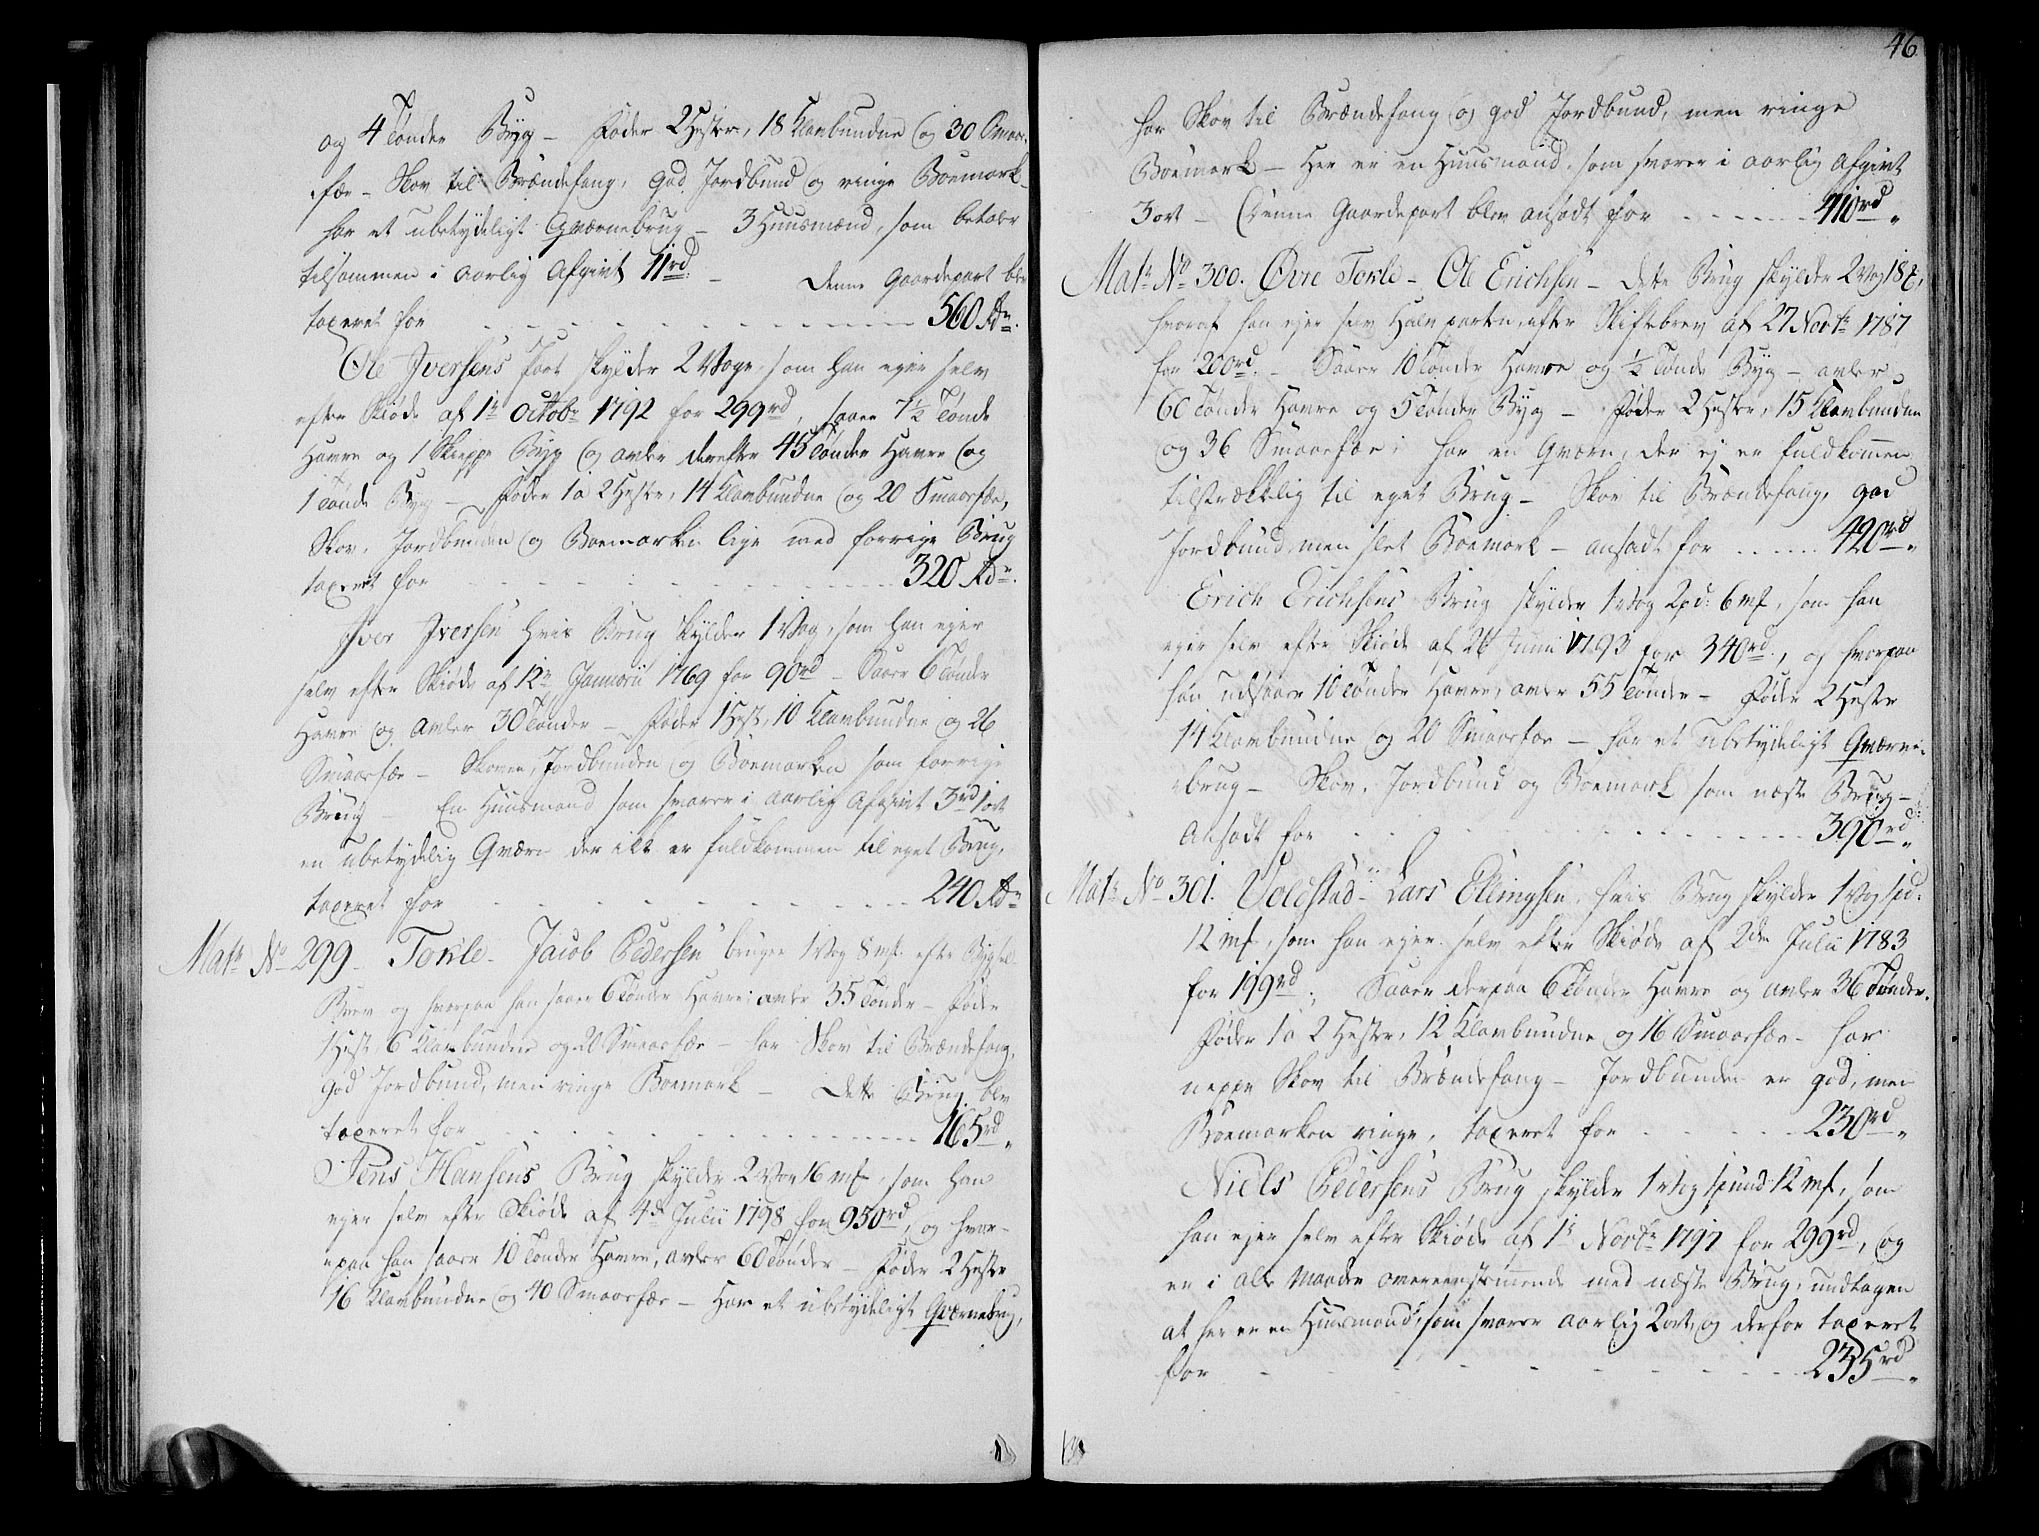 og 4 Tønder Byg – Føder 2 Hester, 18 Klavbundne og 30 Smaae-
fæe – Skov til Brændefang, god Jordbund og ringe Boemark –
har et ubetydeligt Qværnebrug – 3 Huusmænd, som betaler
tilsammen i aarlig Afgivt 11 rd. – Denne Gaardepart blev
taxeret for – – – – – – – 560 Rdr.
Ole Iversens Part skylder 2 Voge, som han ejer selv
efter Skiøde af 1te Octobr 1792 for 299 rd, saaer 7½ Tønde
Havre og 1 Skieppe Byg og avler derefter 45 Tønder Havre og
1 Tønde Byg – Føder 1 a 2 Hester, 14 Klavbundne og 20 Smaaefæe,
Skov, Jordbunden og Boemarken lige med forrige Brug
taxeret for – – – – – – – 320 Rdr.
Iver Iversen hvis Brug skylder 1 Vog, som han ejer
selv efter Skiøde af 12te Januarii 1769 for 90 rd – Saaer 6 Tønder
Havre og avler 30 Tønder – Føder 1 Hest, 10 Klavbundne og 26
Smaaefæe – Skoven, Jordbunden og Boemarken som forrige
Brug – En Huusmand som svarer i aarlig Afgivt 3 rd 1 ort
en ubetydelig Qværn der ikke er fuldkommen til eget Brug,
taxeret for – – – – – – – 240 Rdr
Matr No 299 – Torkle – Jacob Pedersen bruger 1 Vog 8 mk. efter Bygsel-
Brev og hvorpaa han saaer 6 Tønder Havre, avler 35 Tønder – Føder
1 Hest 6 Klavbundne og 20 Smaaefæe – har Skov til Brændefang,
god Jordbund, men ringe Boemark – Dette Brug blev
taxeret for – – – – – – – 165 rd „
Jens Hansens Brug skylder 2 Vov 16 mk, som han
ejer selv efter Skiøde af 4de Julii 1798 for 950 rd, og hvor-
paa han saaer 10 Tønder Havre, avler 60 Tønder – Føder 2 Hester
16 Klavbundne og 40 Smaaefæe – Har et ubetydeligt Qværnebrug,
46
har Skov til Brændefang og god Jordbund, men ringe
Boemark – Her er en Huusmand, som svarer i aarlig Afgivt
3 ort – Denne Gaardepart blev ansadt for – – – 410 rd „
Matr No 300. Øvre Torkle – Ole Erichsen – dette Brug skylder 2 Vog 18 mk,
hvoraf han ejer selv Halvparten, efter Skiftebrev af 27 Novbr 1787
for 200 rd. – Saaer 10 Tønder Havre og ½ Tønde Byg – avler
60 Tønder Havre og 5 Tønder Byg – Føder 2 Hester, 15 Klavbundne
og 36 Smaaefæe, har en Qværn, der ej er fuldkommen
tilstrækkelig til eget Brug – Skov til Brændefang, god
Jordbund, men slet Boemark – ansadt for – – – 420 rd „
Erich Erichsens Brug skylder 1 Vog 2 pd: 6 mk, som han
ejer selv efter Skiøde af 26 Junii 1793 for 340 rd., og hvorpaa
han udsaaer 10 Tønder Havre, avler 55 Tønder – Føder 2 Hester
14 Klavbundne og 20 Smaaefæe – har et ubetydeligt Qværne-
brug – Skov, Jordbund og Boemark som næste Brug –
Ansadt for – – – – – – – 390 rd „
Matr No 301. Voldstad – Lars Ellingsen, hvis Brug skylder 1 Vog 1 pd.
12 mk, som han ejer selv efter Skiøde af 2den Julii 1783
for 199 rd., Saaer derpaa 6 Tønder Havre og avler 36 Tønder.
Føder 1 a 2 Hester, 12 Klavbundne og 16 Smaaefæe – har
neppe Skov til Brændefang – Jordbunden er god, men
Boemarken ringe, taxeret for – – – 230 rd „
Niels Pedersens Brug skylder 1 Vog 1 pund 12 mk, som
han ejer selv efter Skiøde af 1te Novbr 1797 for 299 rd, og
er i alle Maader overeenstemmende med næste Brug, undtagen
at her er en Huusmand, som svarer aarlig 2 ort, og derfor taxeret
for – – – – – – – 235 rd „